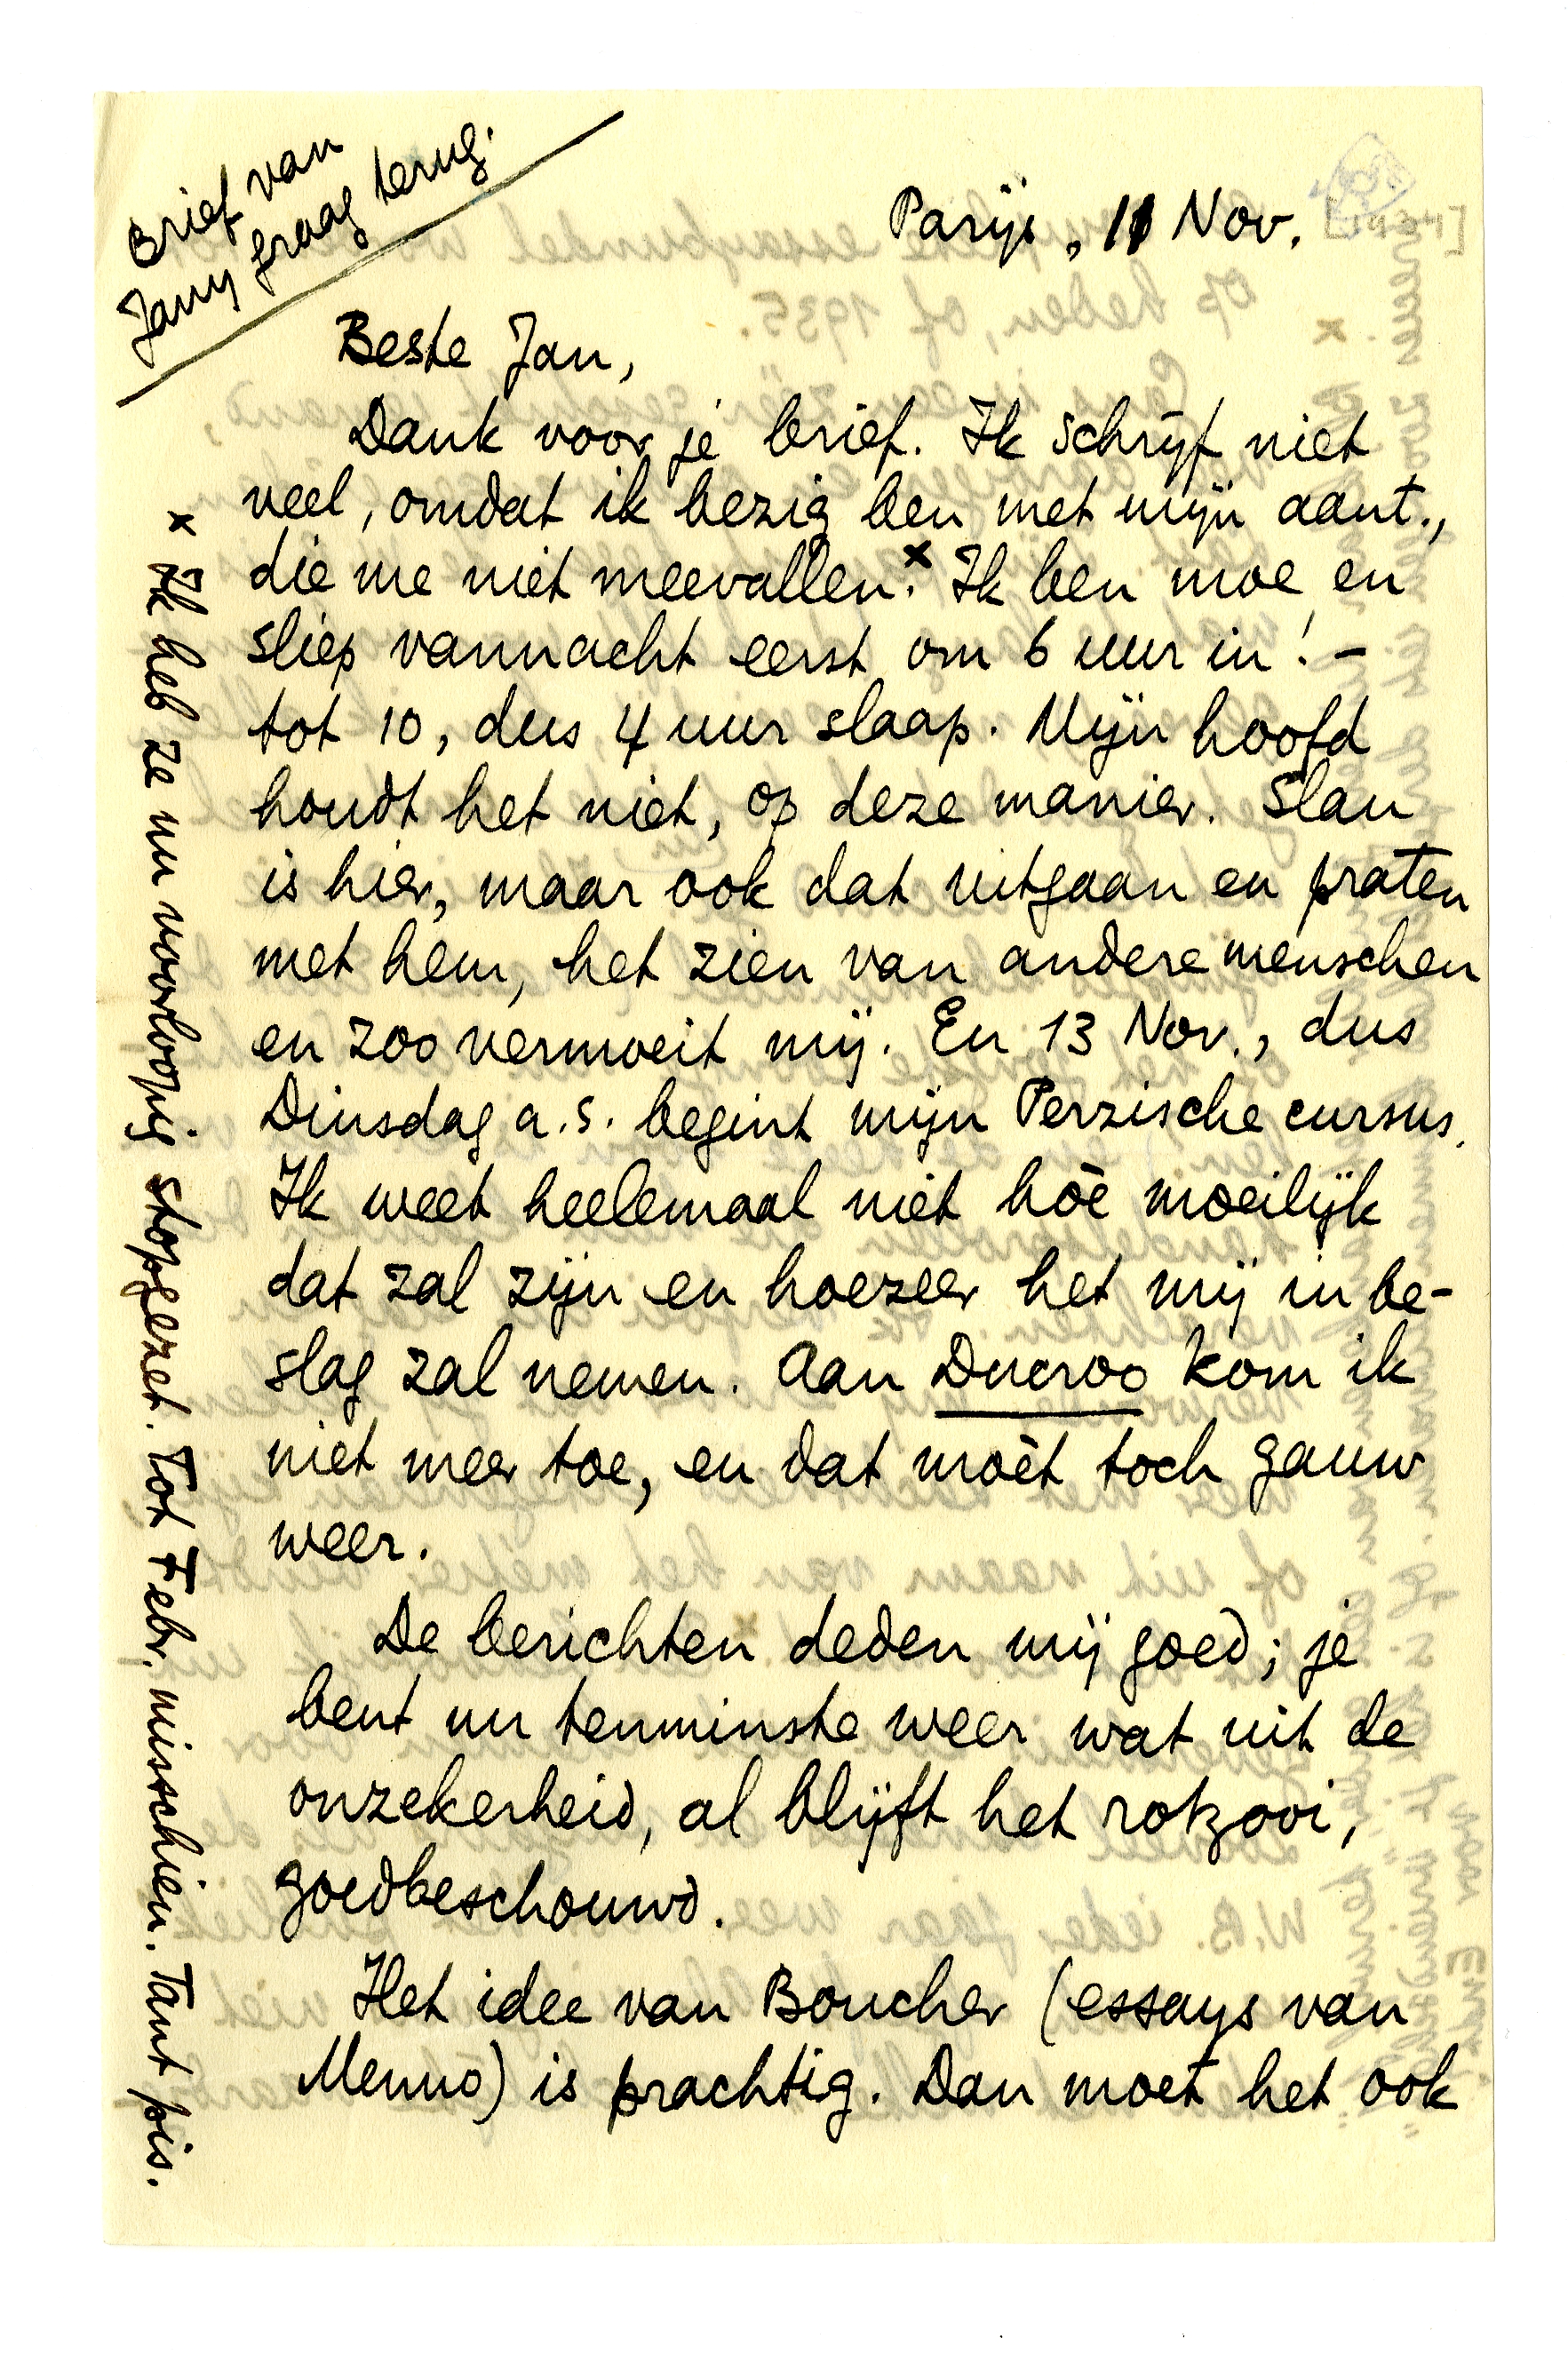 Brief van
Jany graag terug.
Parijs, 11 Nov. [1934]
Beste Jan,
Dank voor je brief. Ik schrijf niet
veel, omdat ik bezig ben met mijn aant.,
die me niet meevallen.x Ik ben moe en
sliep vannacht eerst om 6 uur in! –
tot 10, dus 4 uur slaap. Mijn hoofd
houdt het niet, op deze manier. Slau
is hier, maar ook dat uitgaan en praten
met hem, het zien van andere menschen
en zoo vermoeit mij. En 13 Nov., dus
Dinsdag a.s. begint mijn Perzische cursus.
Ik weet heelemaal niet hòe moeilijk
dat zal zijn en hoezeer het mij in be-
slag zal nemen. Aan Ducroo kom ik
niet meer toe, en dat moèt toch gauw
weer.
De berichten deden mij goed; je
bent nu tenminste weer wat uit de
onzekerheid, al blijft het rotzooi,
goedbeschouwd.
Het idee van Boucher (essays van
Menno) is prachtig. Dan moet het ook
x Ik heb ze nu voorloopig stopgezet. Tot Febr. misschien. Tant pis.